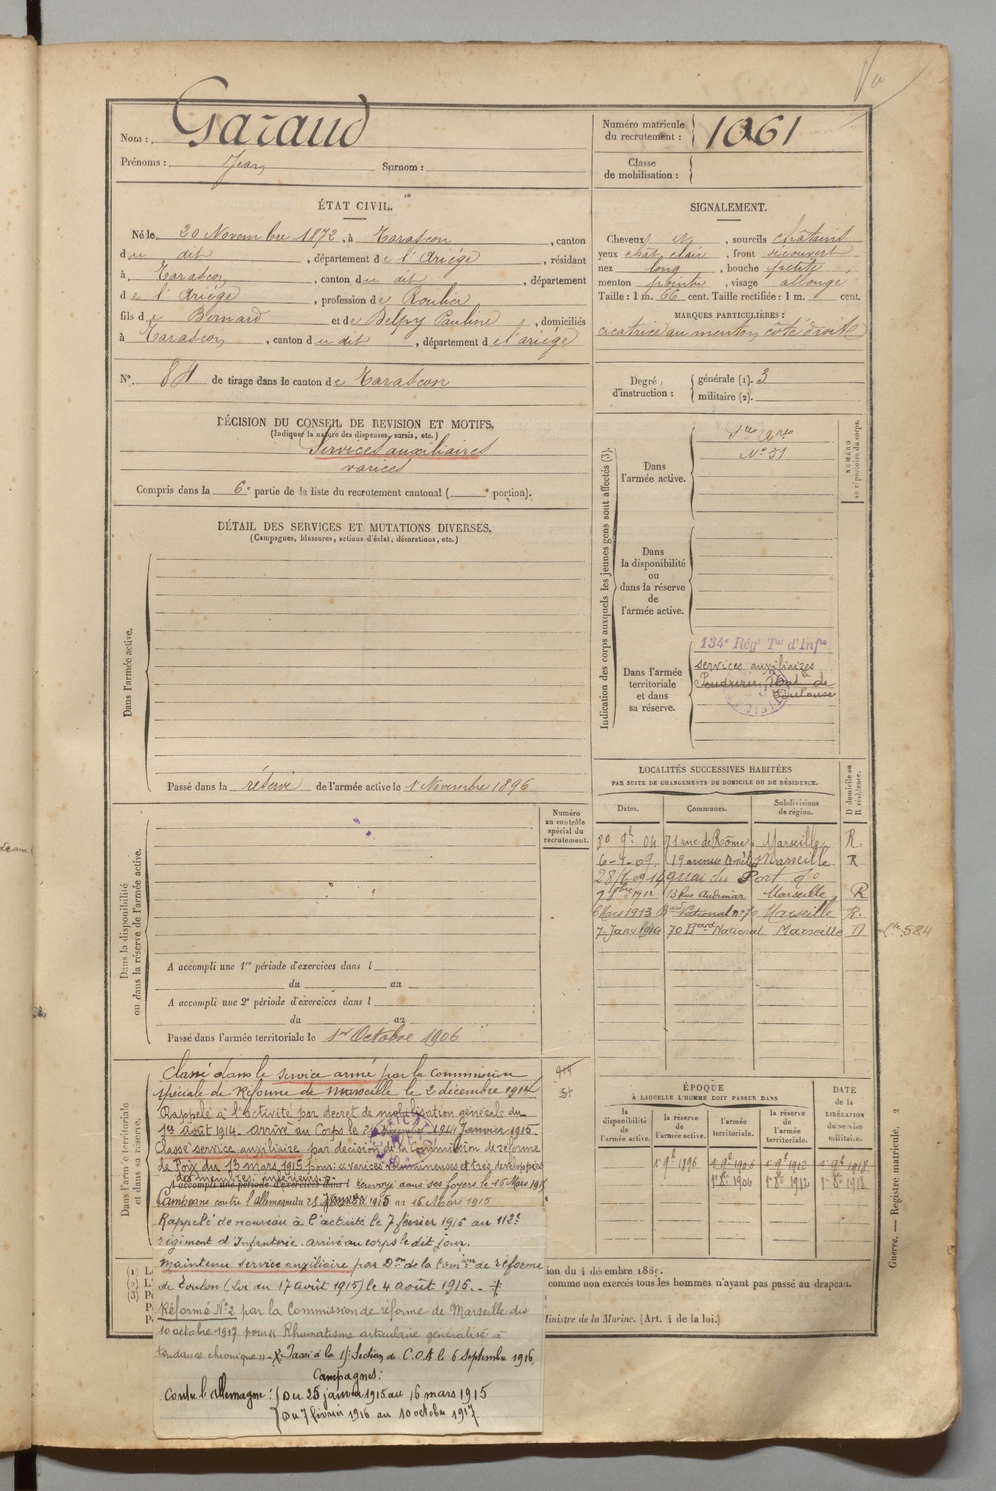 Nom : Garaud
Prénoms : Jean Surnom :
Numéro matricule du recrutement : 1061
Classe de mobilisation :
ÉTAT CIVIL.
Né le 20 Novembre 1872, à Tarascon, canton
du dit, département de l'Ariége, résidant
à Tarascon, canton du dit, département
de l'Ariége, profession de Roulier
fils de Bernard et de Belpy Pauline, domiciliés
à Tarascon, canton du dit, département de l'ariége
N° 84 de tirage dans le canton de Tarascon
SIGNALEMENT.
Cheveux N, sourcils châtains
yeux chât clair, front découvert
nez long, bouche petite
menton pointu, visage allongé
Taille : 1 m. 66 cent. Taille rectifiée : 1 m. cent.
MARQUES PARTICULIÈRES :
cicatrice au menton côté droit
Degré d'instruction :
générale (1). 3
militaire (2).
DÉCISION DU CONSEIL DE REVISION ET MOTIFS.
(Indiquer la nature des dispenses, sursis, etc.)
Services auxiliaires
varices
Compris dans la 6e partie de la liste du recrutement cantonal ( e portion).
DÉTAIL DES SERVICES ET MUTATIONS DIVERSES.
(Campagnes, blessures, actions d'éclat, décorations, etc.)
Dans l'armée active.
Passé dans la réserve de l'armée active le 1 Novembre 1896
Indication des corps auxquels les jeunes gens sont affectés (3).
NUMÉRO au répertoire du corps.
Dans l'armée active.
N° 51
Dans la disponibilité ou dans la réserve de l'armée active.
Dans l'armée territoriale et dans sa réserve.
134e Régt Tal d'Infie
services auxiliaires
Poudrerie Natle de
Toulouse
LOCALITÉS SUCCESSIVES HABITÉES
PAR SUITE DE CHANGEMENTS DE DOMICILE OU DE RÉSIDENCE.
Dates. Communes. Subdivisions de région. D domicile ou R résidence.
30 9b 04 71 rue de Rome Marseille R.
6-1-09. 19 avenue Marseille R
28/6 09 14 quai du Port do
1912 13 Rue Audimar Marseille R
6 Mars 1913 Bard National n° 70 Marseille R.
7 Janv 1914 70 Bard National Marseille D
584
Dans la disponibilité ou dans la réserve de l'armée active.
Numéro au contrôle spécial du recrutement.
A accompli une 1re période d'exercices dans l
du au
A accompli une 2e période d'exercices dans l
du au
Passé dans l'armée territoriale le 1er Octobre 1906
Dans l'armée territoriale et dans sa réserve.
Classé dans le service armé par la Commission
spéciale de Réforme de Marseille le 2 décembre 1914
Rappelé à l'activité par décret de mobilisation générale du
1er Août 1914. arrivé au Corps le Janvier 1915
Classé service auxiliaire par décision de la Commission de réforme
de Foix du 13 mars 1915 pour «varices volumineuses et très developpées
des membres inférieurs». renvoyé dans ses foyers le 16 Mars 1915
Campagne contre l'allemagne du 25 Janvier 1915 au 16 Mars 1915
Rappelé de nouveau à l'activité le 7 février 1916 au 112e
régiment d'Infanterie. arrivé au corps le dit jour.
Maintenu service auxiliaire par Don de la Comion de réforme
de Toulon (Loi du 17 Août 1915) le 4 août 1916.
Réformé N°2 par la Commission de réforme de Marseille du
10 octobre 1917 pour « Rhumatisme articulaire généralisé à
tendance chronique » Passé à la 15e Section de C.O.A le 6 Septembre 1916.
Campagnes :
Contre l'allemagne : Du 25 janvier 1915 au 16 mars 1915
Du 7 février 1916 au 10 octobre 1917.
ÉPOQUE
À LAQUELLE L'HOMME DOIT PASSER DANS
la disponibilité de l'armée active. la réserve de l'armée active. l'armée territoriale. la réserve de l'armée territoriale.
DATE de la LIBÉRATION du service militaire.
1 9b 1896 1 9b 1906 1 9b 1912 1 9b 1918
1 8b 1906 1 8b 1912 1 8b 1918
ion du 4 décembre 1889.
comme non exercés tous les hommes n'ayant pas passé au drapeau.
Ministre de la Marine. (Art. 4 de la loi.)
Guerre. — Registre matricule. 2